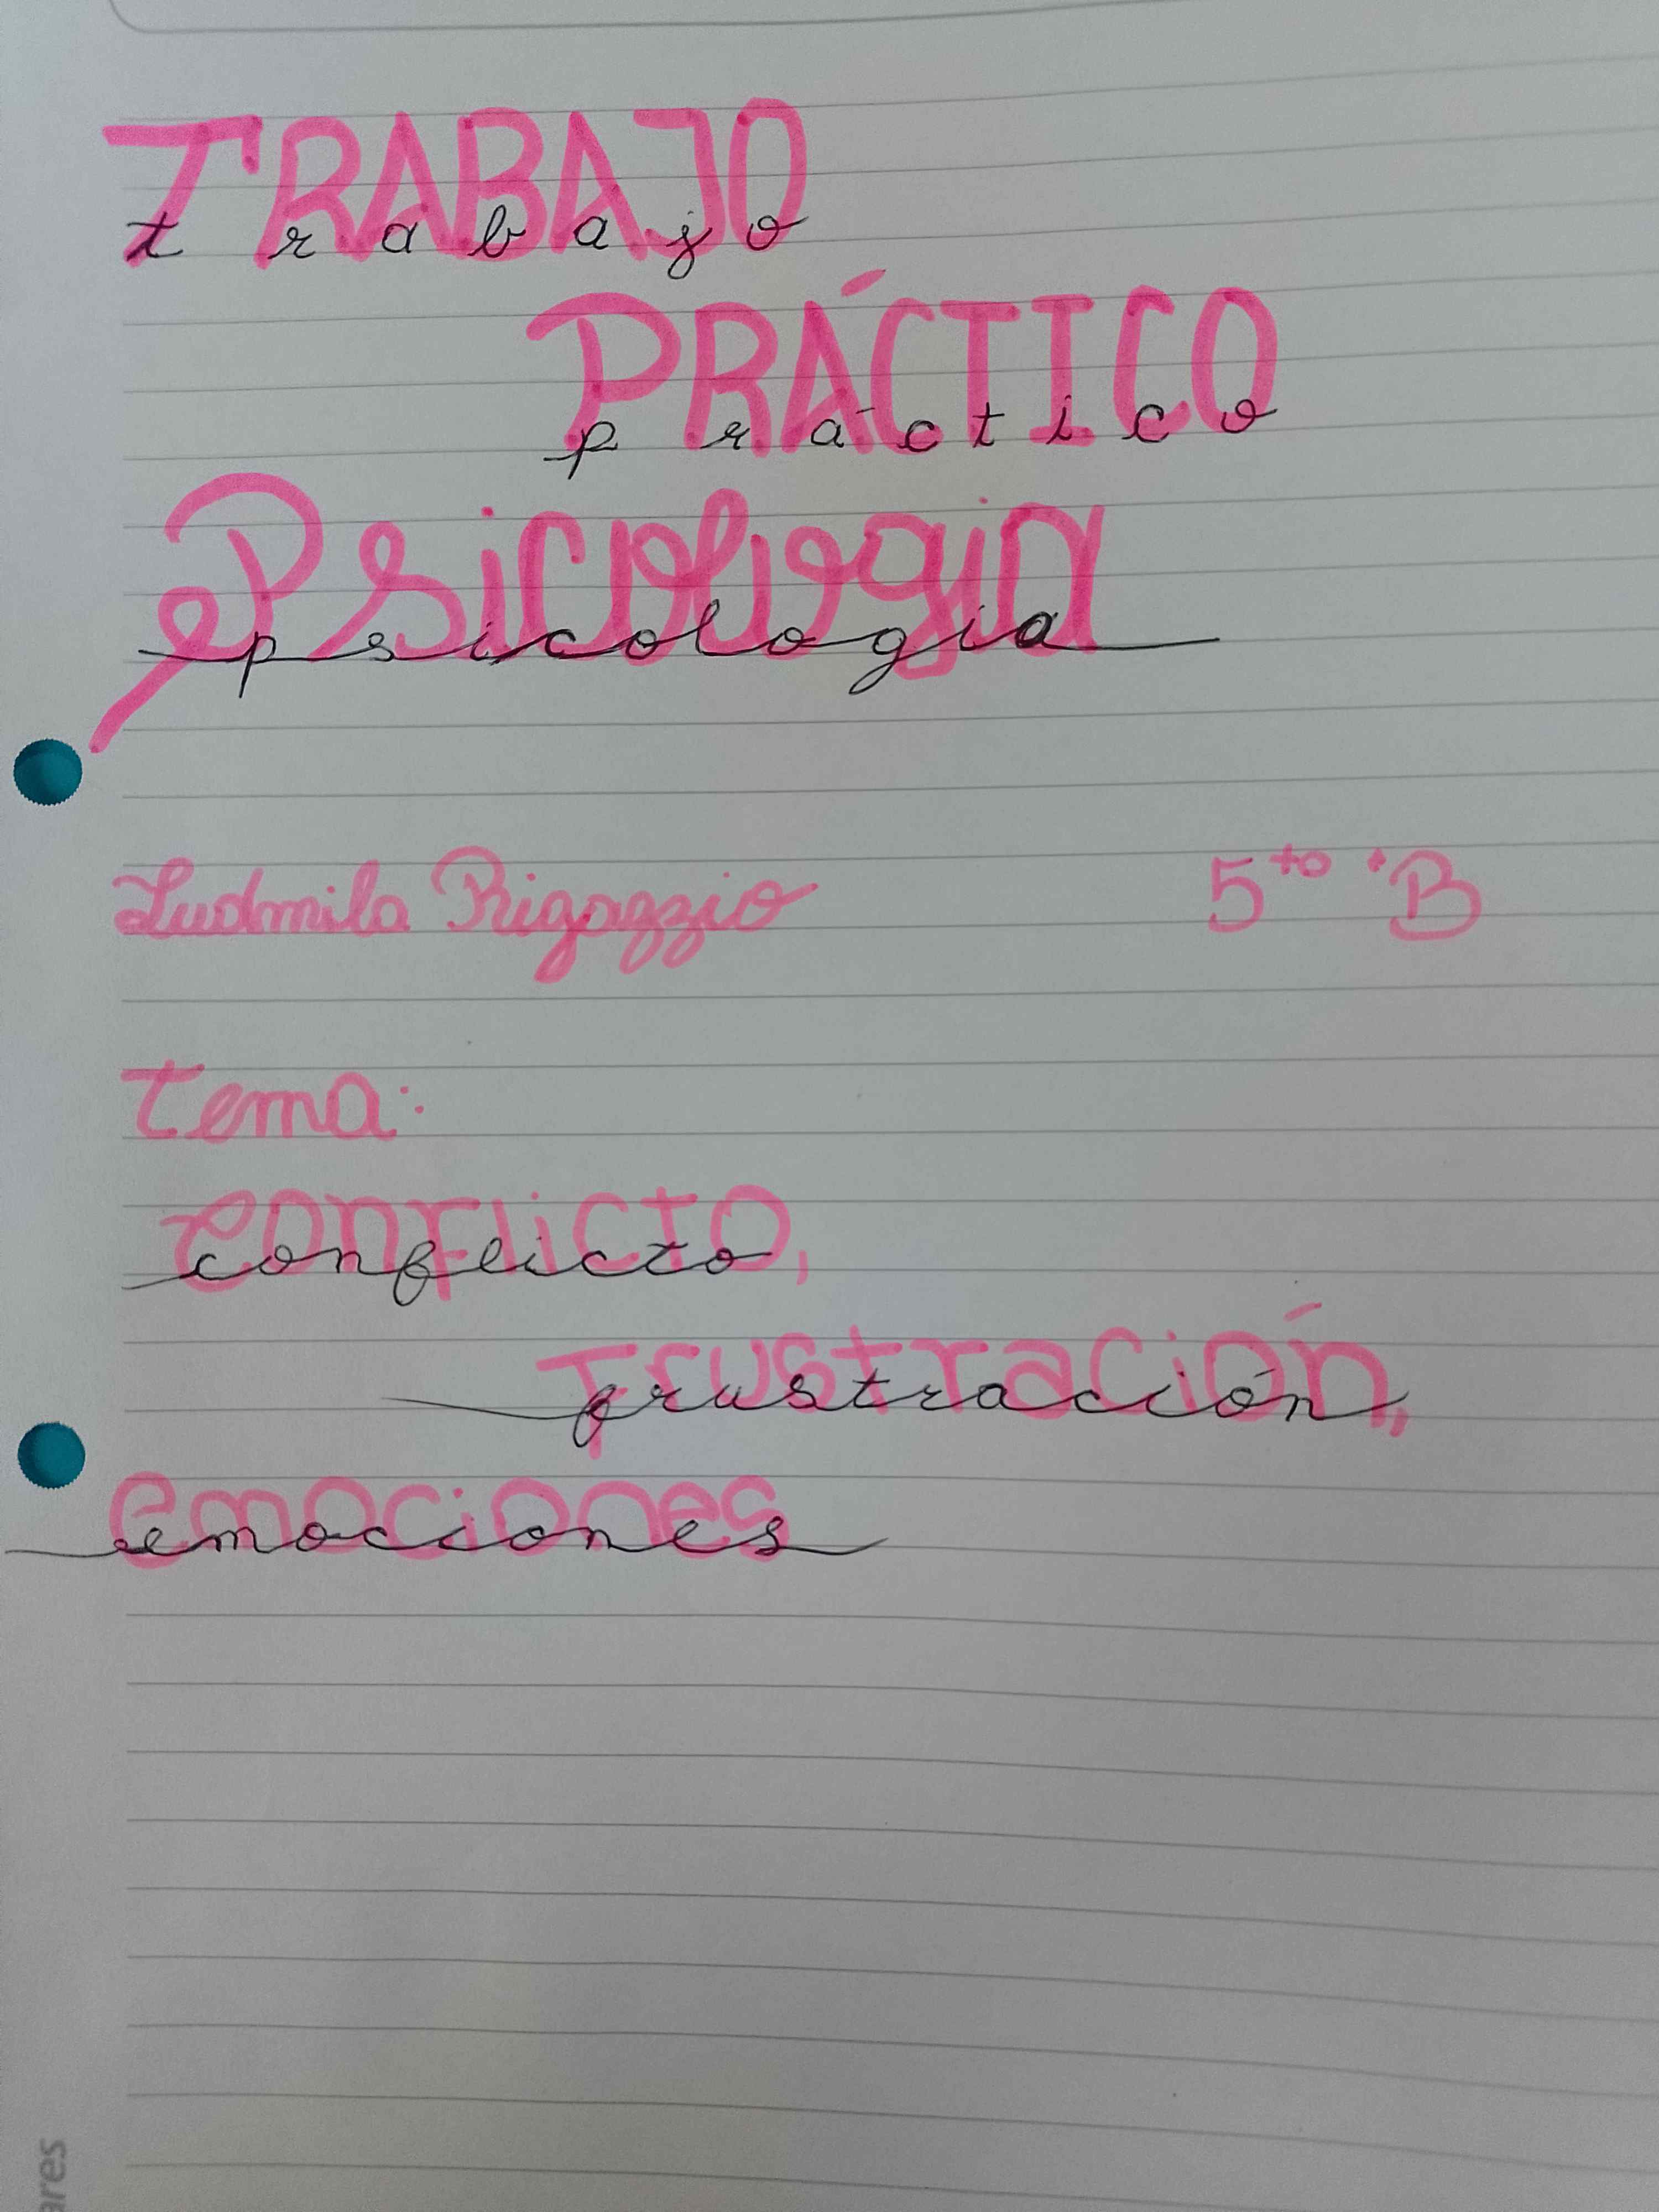 TRABAJO
trabajo
PRÁCTICO
práctico
Psicologia
psicologia
Ludmila Rigazzio 5to "B
Tema:
conflicto,
conflicto
frustración,
frustración
emociones
emociones
ares